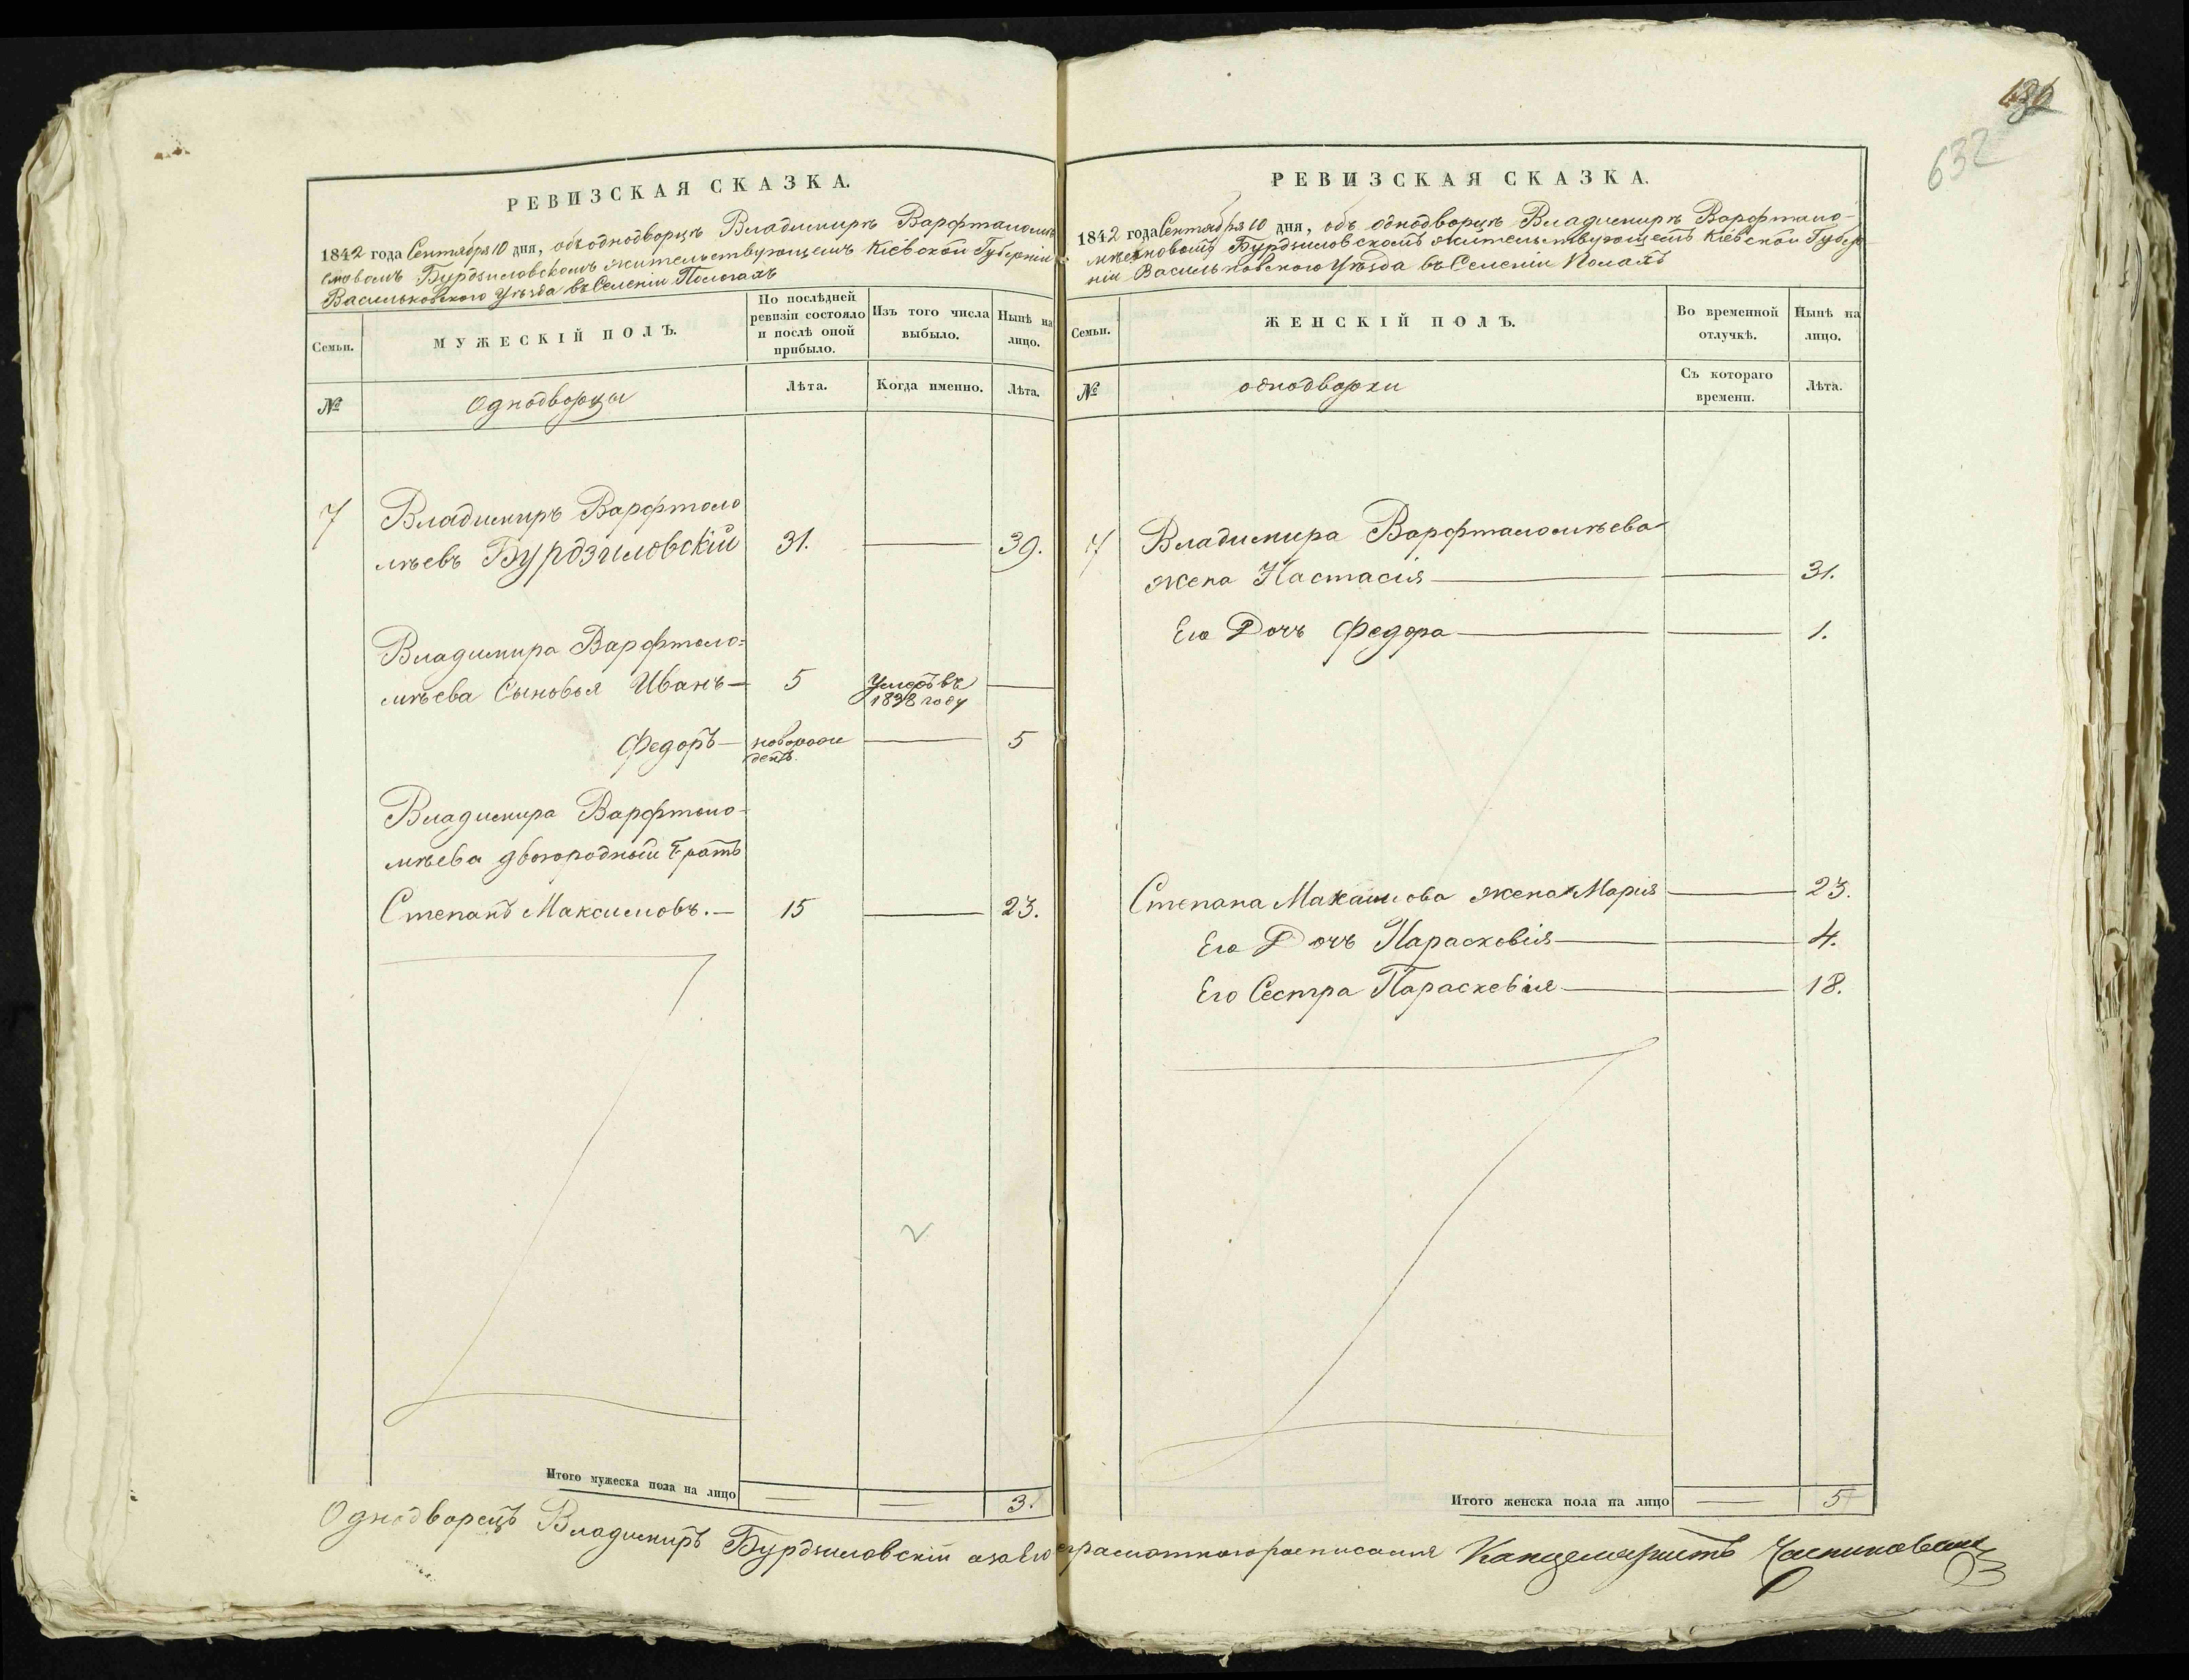 РЕВИЗСКАЯ СКАЗКА.
1842 года Сентября 10 дня, объ однодворцѣ Владимирѣ Варфтоломѣ
Бурдзиловскомъ жительствующемъ Кіевской Губерніи
Васильковского Уѣзда въ Селеніи Пологахъ
Семьи.
МУЖЕСКІЙ ПОЛЪ.
По послѣдней ревизіи состояло и послѣ оной прибыло.
Изъ того числа выбыло.
Нынѣ на лицо.
№
Однодворцы
Лѣта.
Когда именно.
Лѣта.
7
Владимиръ Варфтоло
мѣевъ Бурдзиловскій 31. — 39.
Владимира Варфтоло=
мѣева Сыновья Иванъ — 5 Умеръ въ 1838 году —
Федоръ — новорожденъ — 5
Владимира Варфтоло-
мѣева двоюродный братъ
Степанъ Максимовъ. — 15 — 23.
2
Итого мужеска пола на лицо — — 3.
Однодворецъ Владимиръ Бурдзиловскій
136
632
РЕВИЗСКАЯ СКАЗКА.
1842 года Сентября 10 дня, объ однодворцѣ Владимирѣ Варфтоло-
Бурдзиловскомъ жительствующемъ Кіевской Губер
ніи Васильковского Уѣзда въ Селеніи
Семьи.
ЖЕНСКІЙ ПОЛЪ.
Во временной отлучкѣ.
Нынѣ на лицо.
№
однодворки
Съ котораго времени.
Лѣта.
7
Владимира Варфталомѣева
жена Настасія — — 31.
Его Дочь Федора — — 1.
Степана Максимова жена Марія — 23.
Его Дочь Парасковія — — 4.
Его Сестра Параскевія — — 18.
Итого женска пола на лицо — 5
Канцеляристъ